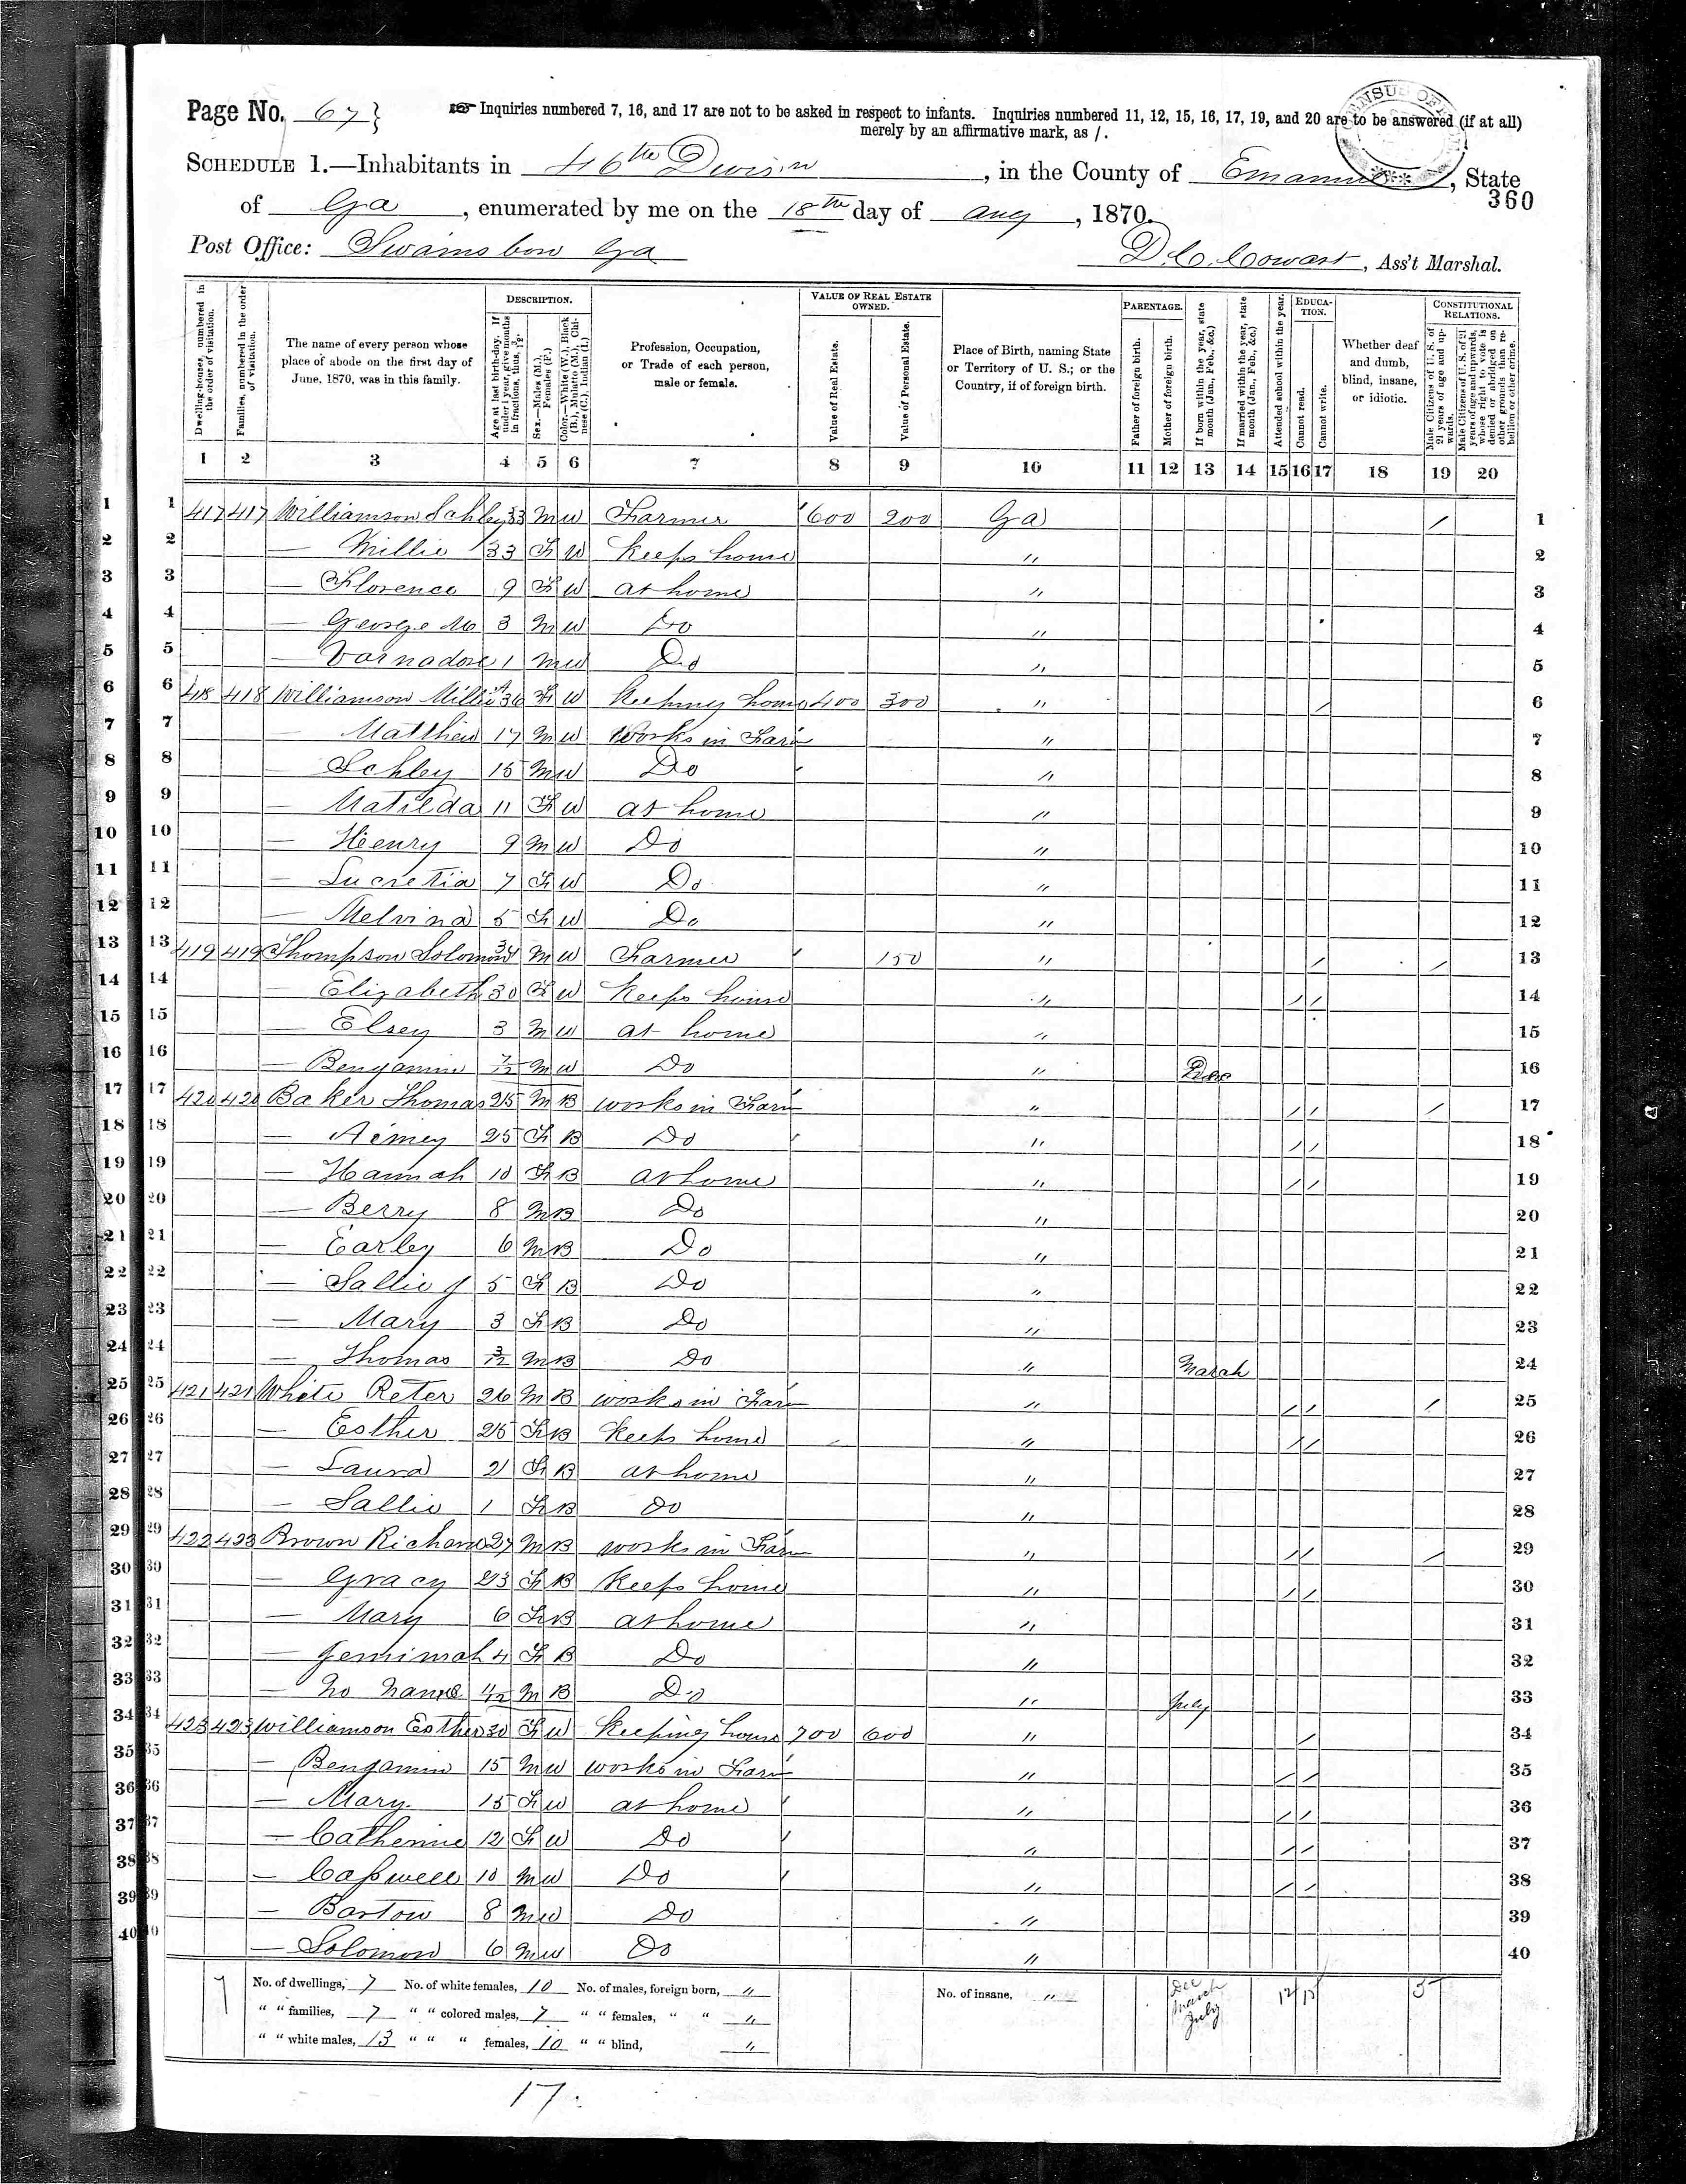 Page No. 67}
Inquiries numbered 7, 16, and 17 are not to be asked in respect to infants. Inquiries numbered 11, 12, 15, 16, 17, 19, and 20 are to be answered (if at all)
merely by an affirmative mark, as /.
SCHEDULE 1.—Inhabitants in 46th Divisin, in the County of Emanuel, State
360
of Ga, enumerated by me on the 18th day of Aug, 1870.
Post Office: Swainsboro Ga
D. C. Cowart, Ass't Marshal.
Dwelling-houses, numbered in the order of visitation.
Families, numbered in the order of visitation.
The name of every person whose place of abode on the first day of June, 1870, was in this family.
DESCRIPTION.
Age at last birth-day. If under 1 year, give months in fractions, thus, 3/12.
Sex.—Males (M.), Females (F.)
Color.—White (W.), Black (B.), Mulatto (M.), Chinese (C.), Indian (I.)
Profession, Occupation, or Trade of each person, male or female.
VALUE OF REAL ESTATE OWNED.
Value of Real Estate.
Value of Personal Estate.
Place of Birth, naming State or Territory of U. S.; or the Country, if of foreign birth.
PARENTAGE.
Father of foreign birth.
Mother of foreign birth.
If born within the year, state month (Jan., Feb., &c.)
If married within the year, state month (Jan., Feb., &c.)
Attended school within the year.
EDUCATION.
Cannot read.
Cannot write.
Whether deaf and dumb, blind, insane, or idiotic.
CONSTITUTIONAL RELATIONS.
Male Citizens of U. S. of 21 years of age and upwards.
Male Citizens of U. S. of 21 years of age and upwards, whose right to vote is denied or abridged on other grounds than rebellion or other crime.
1 2 3 4 5 6 7 8 9 10 11 12 13 14 15 16 17 18 19 20
1 1 417 417 Williamson Schley 33 M W Farmer 600 200 Ga / 1
2 2 — Millie 33 F W Keeps home " 2
3 3 — Florence 9 F W at home " 3
4 4 — George M 3 M W Do " 4
5 5 — Varnadore 1 M W Do " 5
6 6 418 418 Williamson Millie 36 F W Keeping home 400 300 " / 6
7 7 — Matthew 17 M W Works in Farm " 7
8 8 — Schley 15 M W Do " 8
9 9 — Matilda 11 F W at home " 9
10 10 — Henry 9 M W Do " 10
11 11 — Lucretia 7 F W Do " 11
12 12 — Melvina 5 F W Do " 12
13 13 419 419 Thompson Solomon 34 M W Farmer 150 " / / 13
14 14 — Elizabeth 30 F W Keeps home " / / 14
15 15 — Elsey 3 M W at home " 15
16 16 — Benjamin 7/12 M W Do " Dec 16
17 17 420 420 Baker Thomas 25 M B works in Farm " / / / 17
18 18 — Aimey 25 F B Do " / / 18
19 19 — Hannah 10 F B at home " / / 19
20 20 — Berry 8 M B Do " 20
21 21 — Earley 6 M B Do " 21
22 22 — Sallie J 5 F B Do " 22
23 23 — Mary 3 F B Do " 23
24 24 — Thomas 3/12 M B Do " March 24
25 25 421 421 White Peter 26 M B works in Farm " / / / 25
26 26 — Esther 25 F B Keeps home " / / 26
27 27 — Laura 2 F B at home " 27
28 28 — Sallie 1 F B Do " 28
29 29 422 422 Brown Richard 27 M B works in Farm " / / / 29
30 30 — Gracy 23 F B Keeps home " / / 30
31 31 — Mary 6 F B at home " 31
32 32 — Jemimah 4 F B Do " 32
33 33 — No Name 11/12 M B Do " July 33
34 34 423 423 Williamson Esther 30 F W Keeping home 700 600 " / 34
35 35 — Benjamin 15 M W works in Farm " / / 35
36 36 — Mary 15 F W at home " / / 36
37 37 — Catherine 12 F W Do " / / 37
38 38 — Caswell 10 M W Do " / / 38
39 39 — Bartow 8 M W Do " 39
40 40 — Solomon 6 M W Do " 40
7 No. of dwellings, 7 No. of white females, 10 No. of males, foreign born, " No. of insane, " Dec March July 12/15 5
" " families, 7 " " colored males, 7 " " females, " " "
" " white males, 13 " " " females, 10 " " blind, "
17.